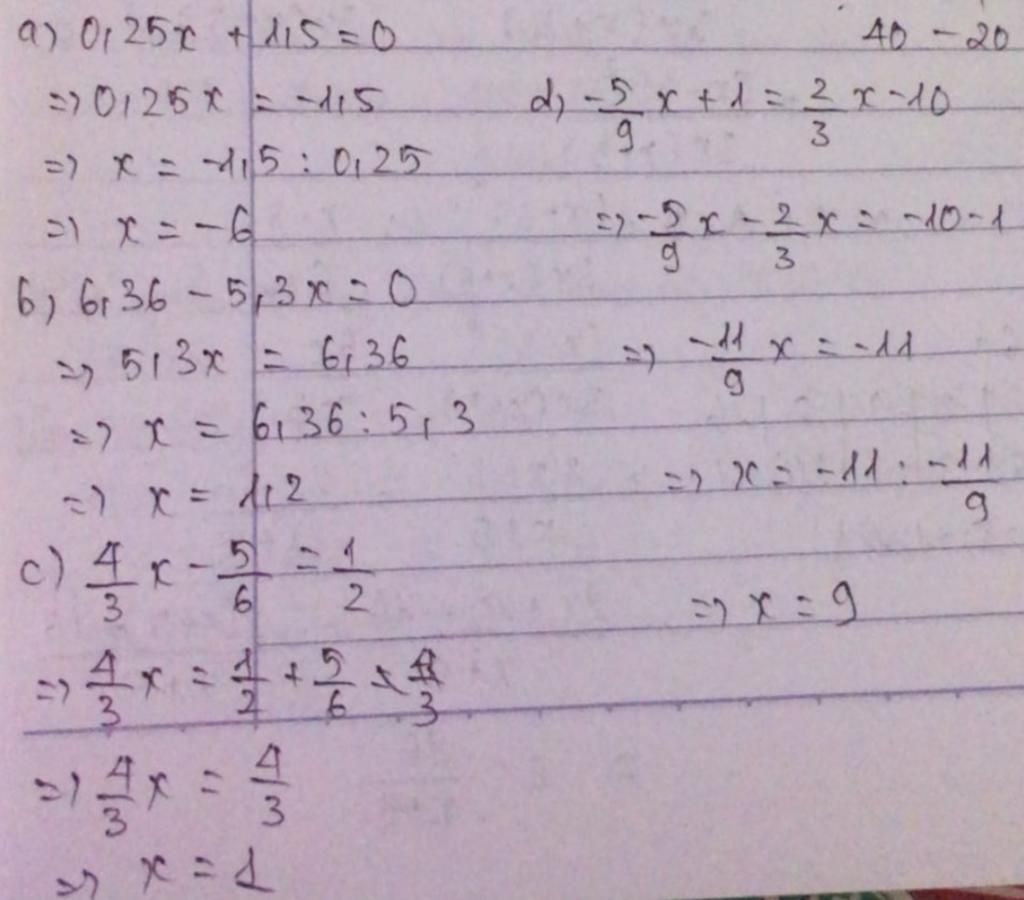 a) 0,25x + 1,5 = 0
=> 0,25x = -1,5
=> x = -1,5 : 0,25
=> x = -6
b) 6,36 - 5,3x = 0
=> 5,3x = 6,36
=> x = 6,36 : 5,3
=> x = 1,2
c) 4/3 x - 5/6 = 1/2
=> 4/3 x = 1/2 + 5/6
=> 4/3 x = 4/3
=> x = 1
40 - 20
d) -5/9 x + 1 = 2/3 x - 10
=> -5/9 x - 2/3 x = -10 - 1
=> -11/9 x = -11
=> x = -11 : -11/9
=> x = 9